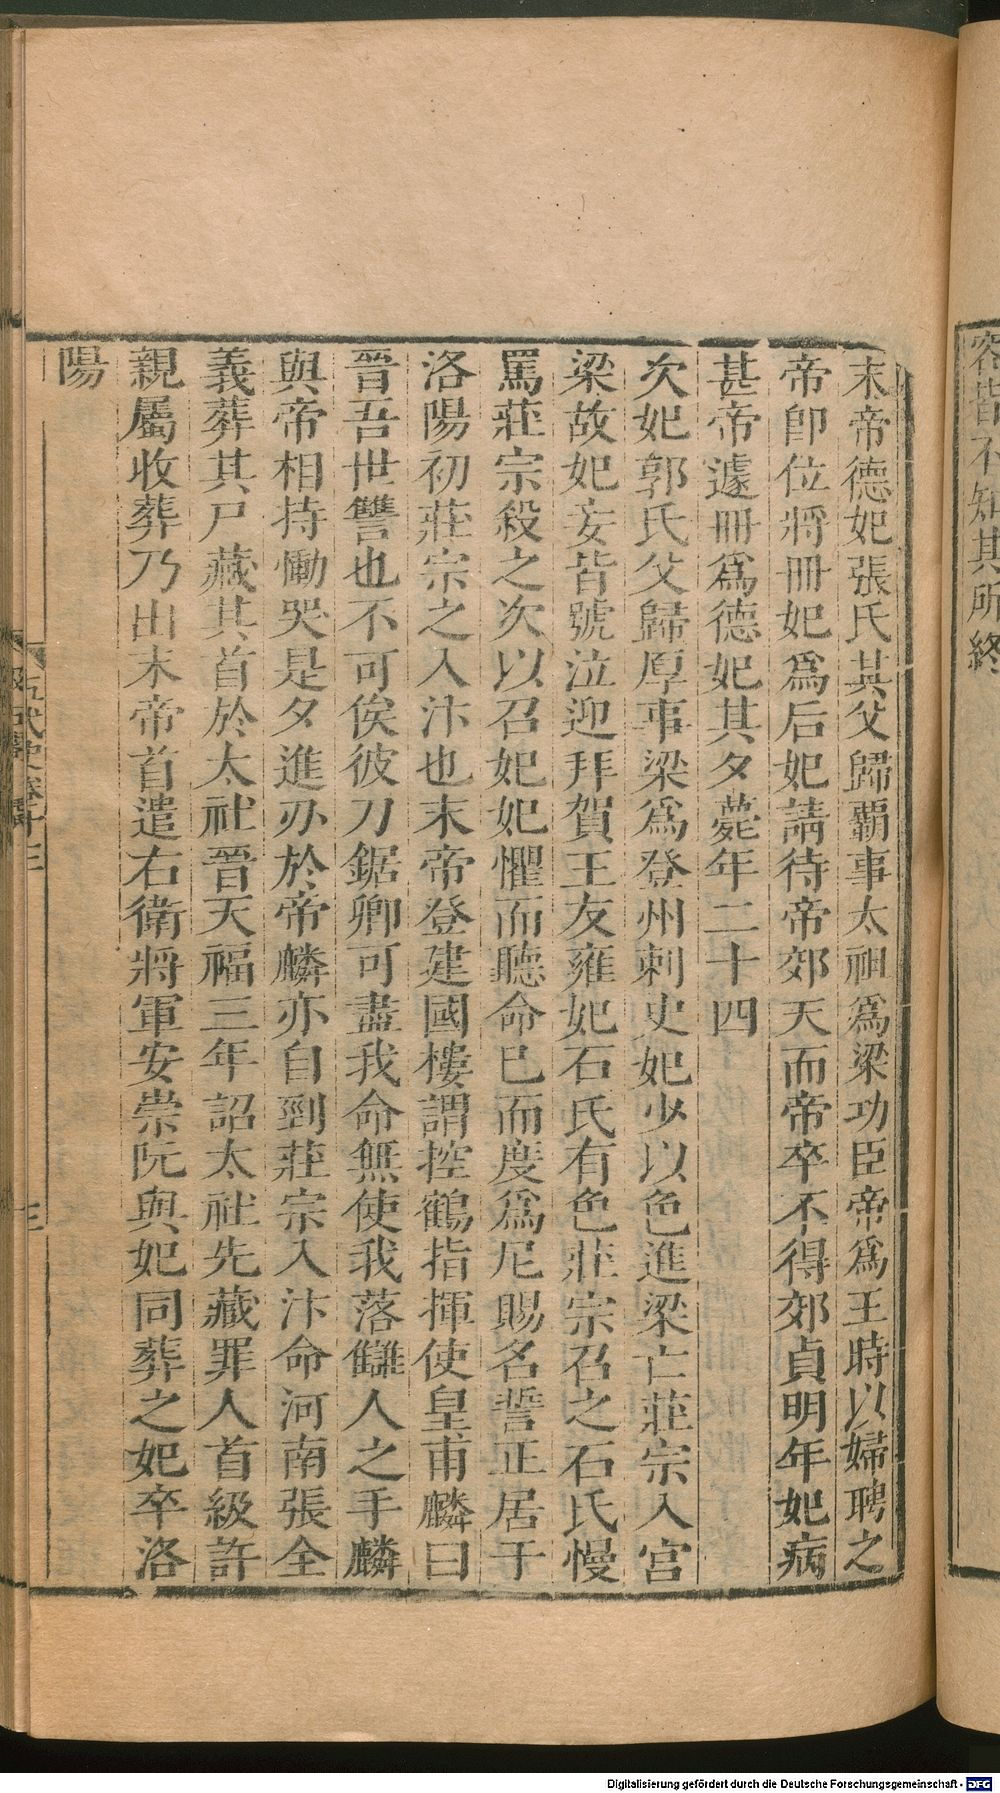 容皆不知其所終
末帝德妃張氏其父歸覇事太祖爲梁功臣帝爲王時以婦聘之
帝卽位將冊妃爲后妃請待帝郊天而帝卒不得郊貞明年妃病
甚帝遽冊爲德妃其夕薨年二十四
次妃郭氏父歸厚事梁爲登州刺史妃少以色進梁亡莊宗入宮
梁故妃妾皆號泣迎拜賀王友雍妃石氏有色莊宗召之石氏慢
罵莊宗殺之次以召妃妃懼而聽命已而度爲尼賜名誓正居于
洛陽初莊宗之入汴也末帝登建國樓謂控鶴指揮使皇甫麟曰
晉吾世讐也不可俟彼刀鋸卿可盡我命無使我落讎人之手麟
與帝相持慟哭是夕進刃於帝麟亦自剄莊宗入汴命河南張全
義葬其尸藏其首於太社晉天福三年詔太社先藏罪人首級許
親屬收葬乃出末帝首遣右衛將軍安崇阮與妃同葬之妃卒洛
陽
五代史卷十三
三
Digitalisierung gefördert durch die Deutsche Forschungsgemeinschaft - DFG